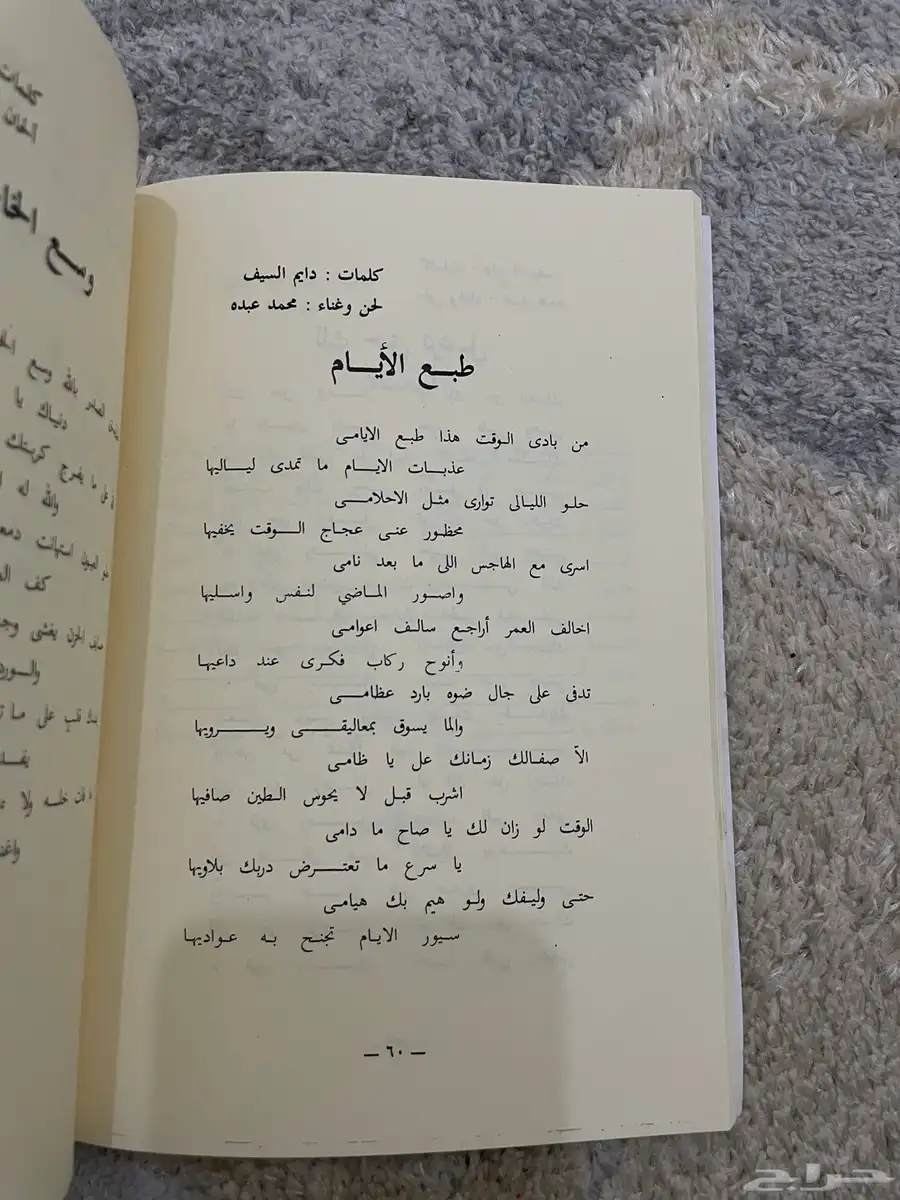 كلمات : دايم السيف
لحن وغناء : محمد عبده
طبـع الأيـام
من بادى الوقت هذا طبع الايامى
عذبات الايام ما تمدى لياليها
حلو الليالى توارى مثل الاحلامى
محظور عنى عجاج الوقت يخفيها
اسرى مع الهاجس اللى ما بعد نامى
واصور الماضي لنفس واسليها
اخالف العمر أراجع سالف اعوامى
وأنوح ركاب فكرى عند داعيها
تدفى على جال ضوه بارد عظامى
والما يسوق بمعاليقى ويرويها
الاّ صفالك زمانك عل يا ظامى
اشرب قبل لا يحوس الطين صافيها
الوقت لو زان لك يا صاح ما دامى
يا سرع ما تعترض دربك بلاويها
حتى وليفك ولو هيم بك هيامى
سيور الايام تجنح به عواديها
— ٦٠ —
كلمات
وسع
دنياك يا
ما يفرج كربتك
والله له
دمع
كف
الحزن يغشى
قلب على
حراج